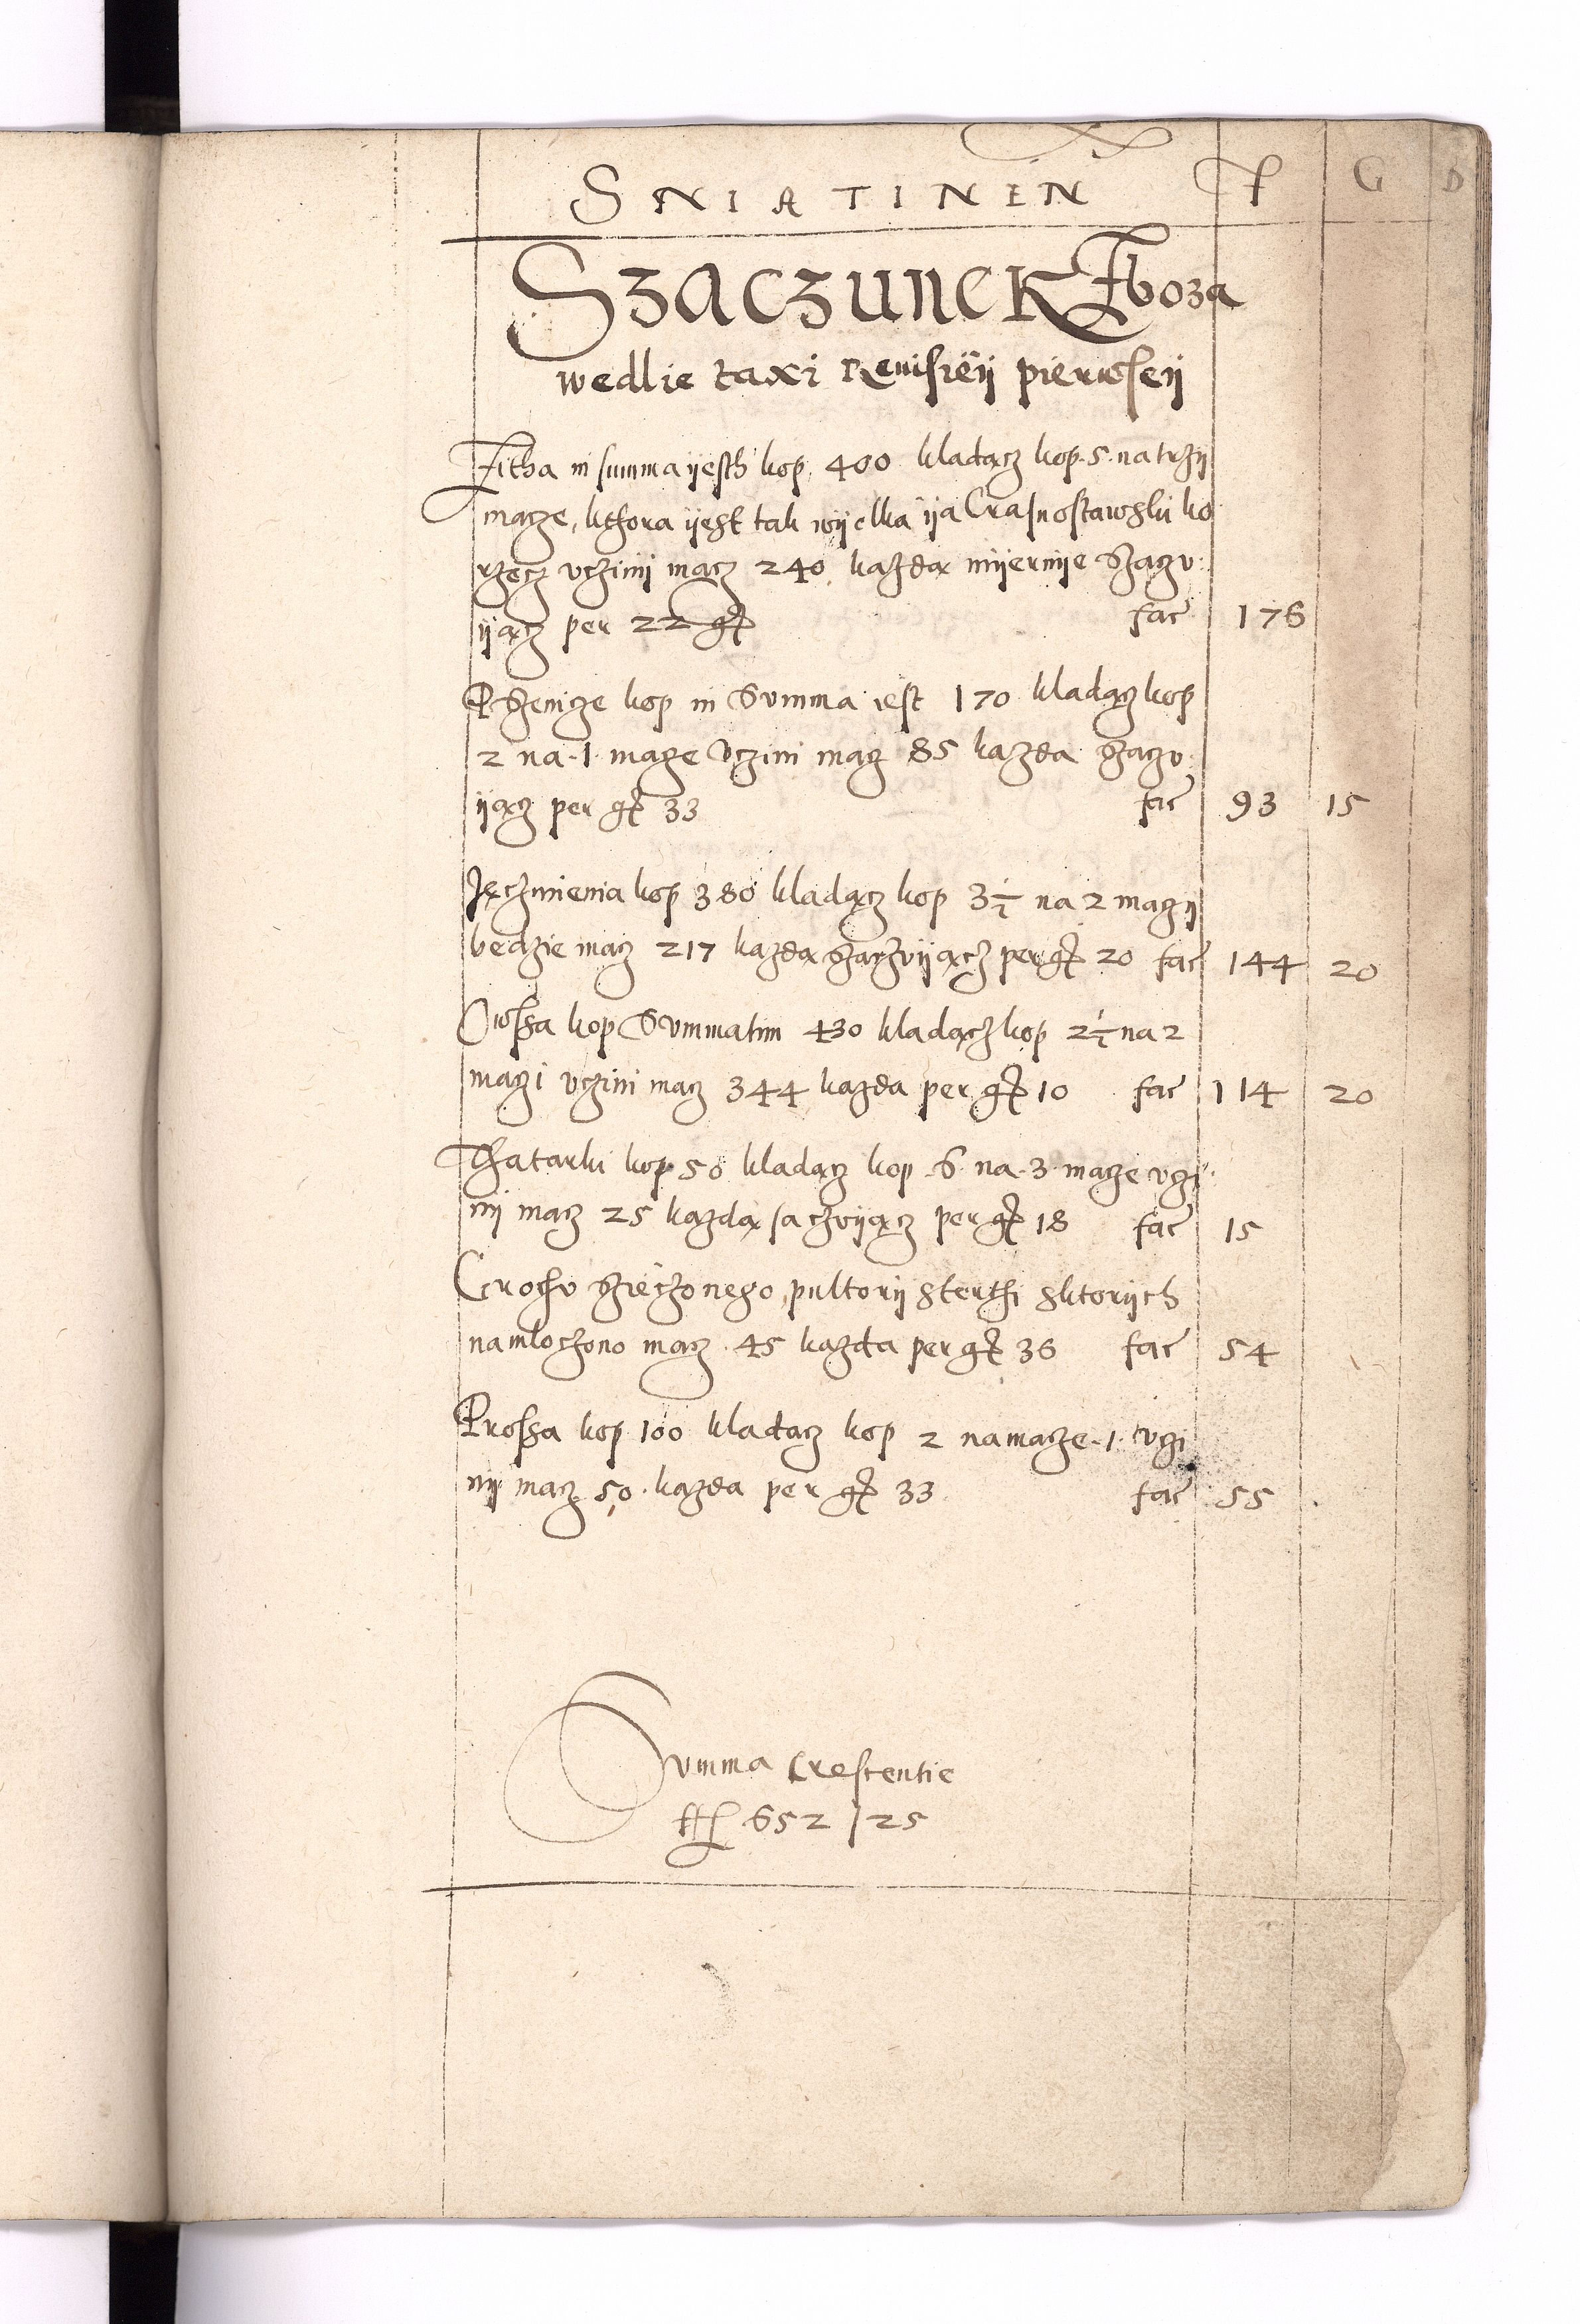 SNIATINEN F G D
Szaczunck Zboza
wedlie taxi Reuisieij pierwseij
Zitha in summa ijesth kop. 400 kladącz kop. 5. na trzij
macze, kthora ijest tak wijelka ija Crasnostawski ko
rzecz vczinij macz 240 kazdą mijernije szaczv:
ijącz per 22 gr fac 176
Pszenicze kop in Summa iest 170 kladącz kop
2 na .1. macze Vczini macz 85 kazda szaczv:
ijącz per gr 33 fac 93 15
Jęczmienia kop 380 kladącz kop 3½ na 2 maczij
bedzie macz 217 kazdą szaczvijącz per gr 20 fac 144 20
Owssa kop Summatim 430 kladącz kop 2½ na 2
maczi vczini macz 344 kazda per gr 10 fac 114 20
Thatarki kop. 50 kladącz kop .6. na .3. macze vczi
nij macz 25 kazdą saczvijącz per gr 18 fac 15
Grochv szieczonego pultorij sterthi sktorijch
namloczono macz 45 kazda per gr 36 fac 54
Prossa kop. 100 kladacz kop 2 na macze .1. vczi
nij macz 50. kazda per gr 33 fac 55
Summa Crescentie
fl 652 / 25